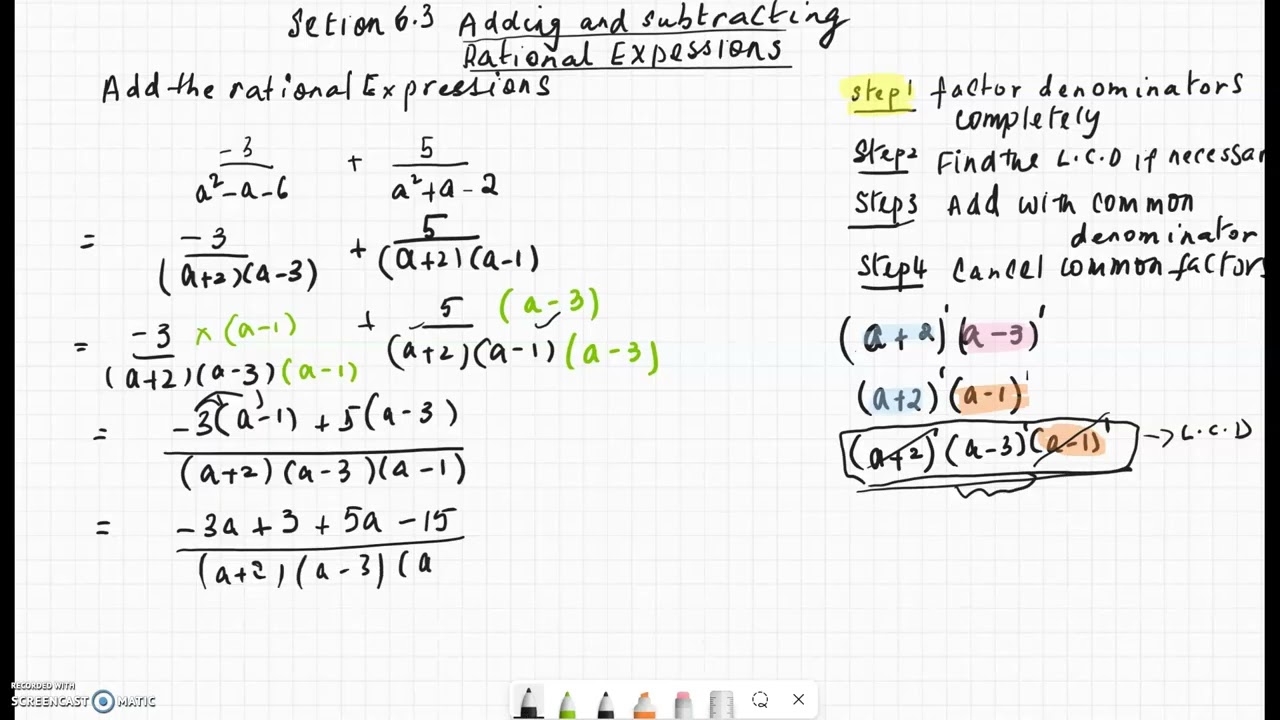 Setion 6.3 Adding and subtracting
Rational Expessions
Add the rational Expressions
-3/(a²-a-6) + 5/(a²+a-2)
= -3/((a+2)(a-3)) + 5/((a+2)(a-1))
= -3/((a+2)(a-3)(a-1)) × (a-1) + 5(a-3)/((a+2)(a-1)(a-3))
= (-3(a-1) + 5(a-3))/((a+2)(a-3)(a-1))
= (-3a + 3 + 5a - 15)/((a+2)(a-3)(a
step1 factor denominators
completely
Step2 Find the L.C.D if necessar
Step3 Add with common
denominator
Step4 Cancel common factors
(a+2)¹(a-3)¹
(a+2)¹(a-1)¹
(a+2)¹(a-3)¹(a-1)¹ → L.C.D
RECORDED WITH
SCREENCAST MATIC